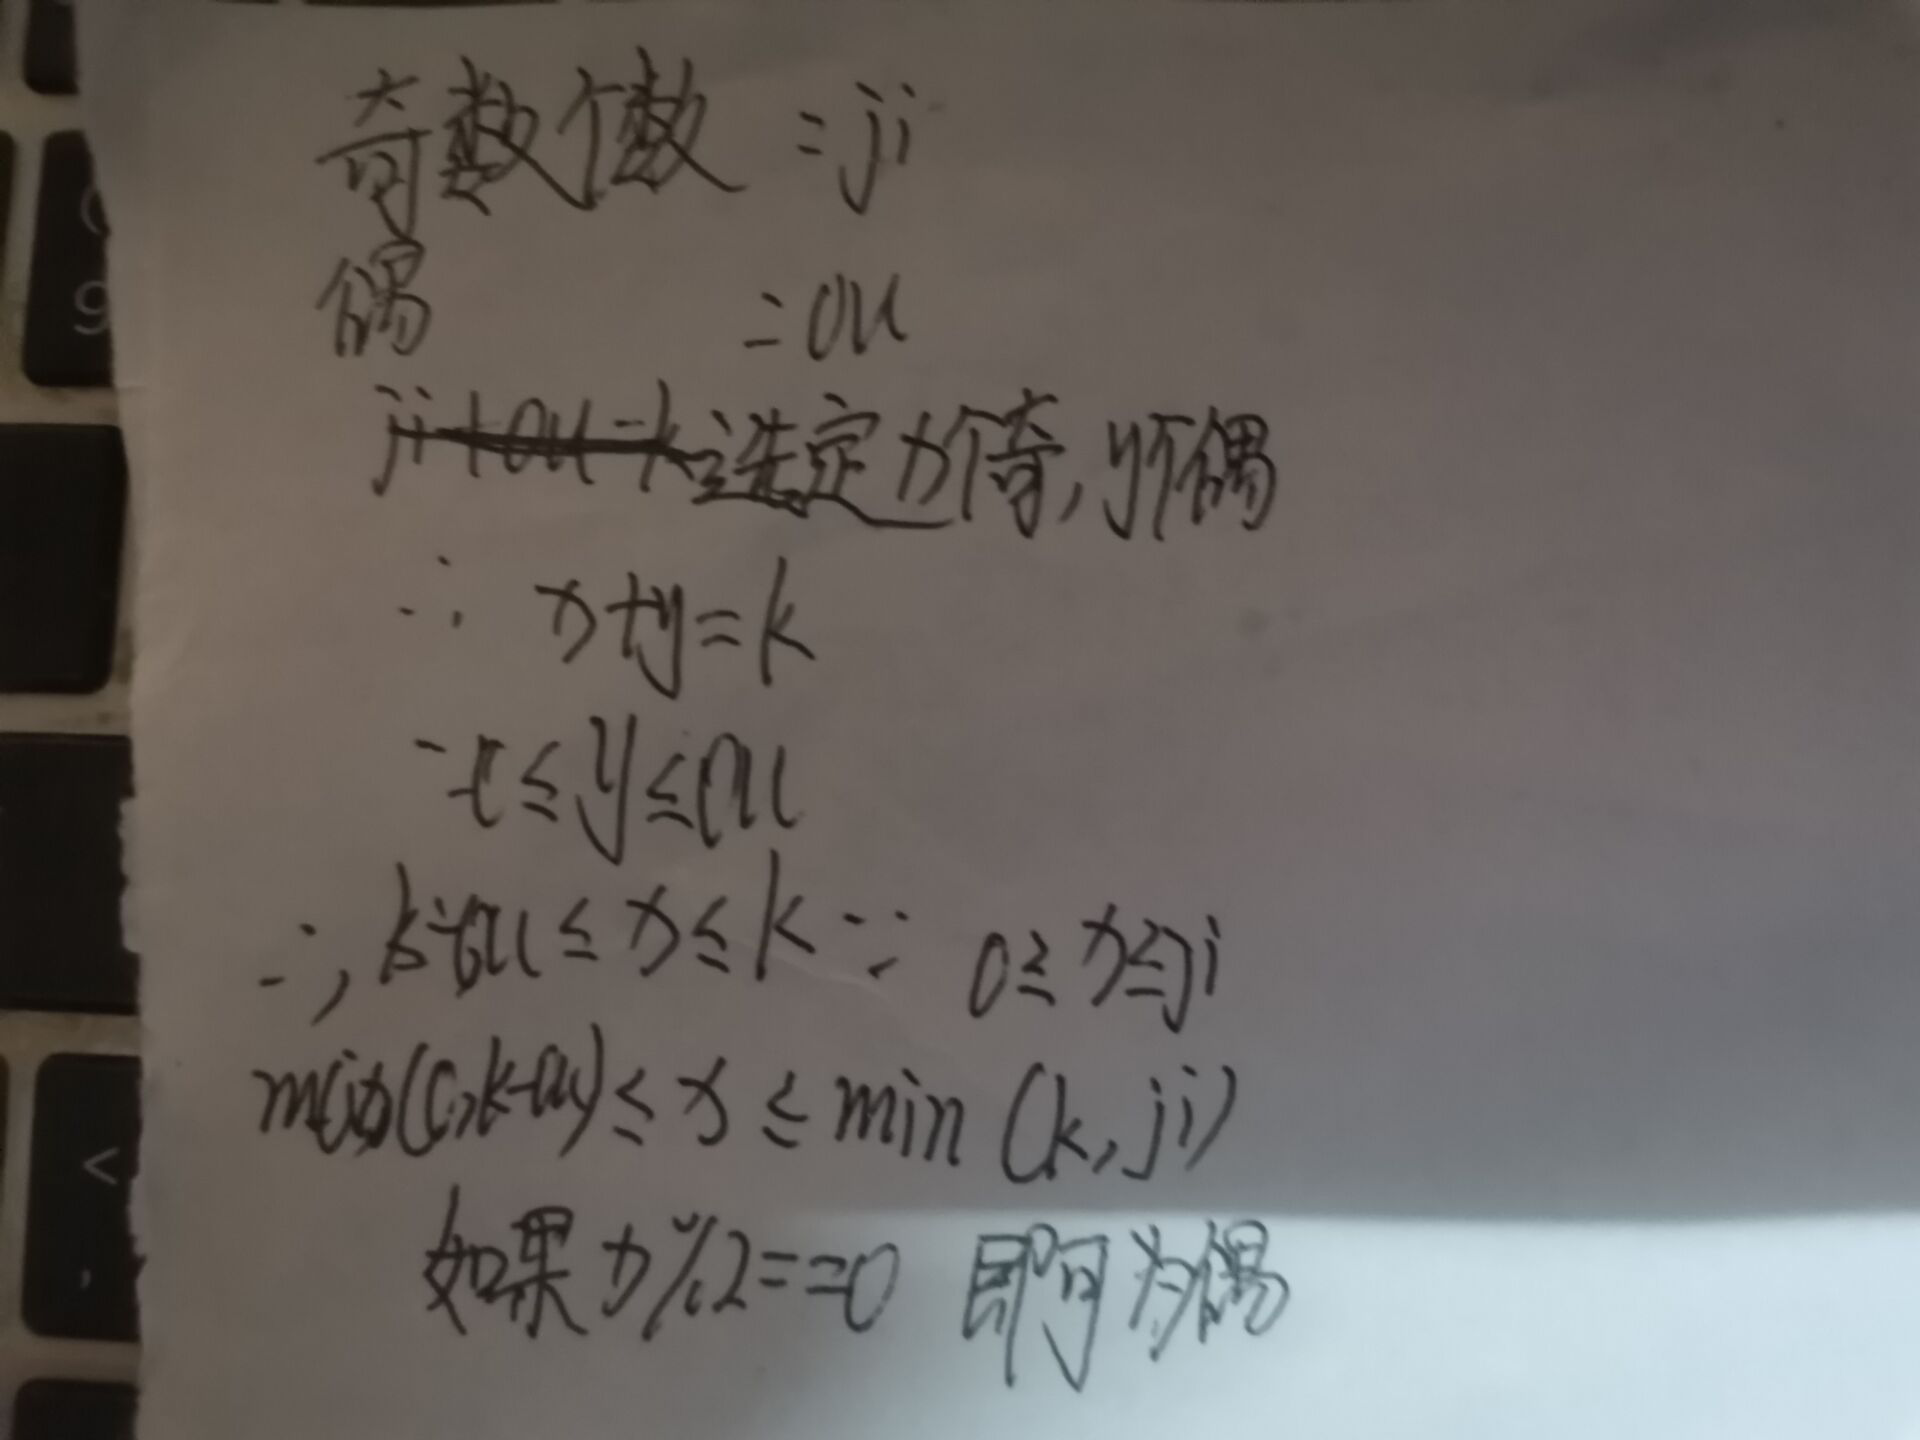 奇数个数 =ji
偶 =ou
选定x个奇,y个偶
∴ x+y=k
0≤y≤ou
∴, k-ou≤x≤k ∵ 0≤x≤ji
max(0,k-ou)≤x≤min(k,ji)
如果x%2==0 即可为偶
9
<
,